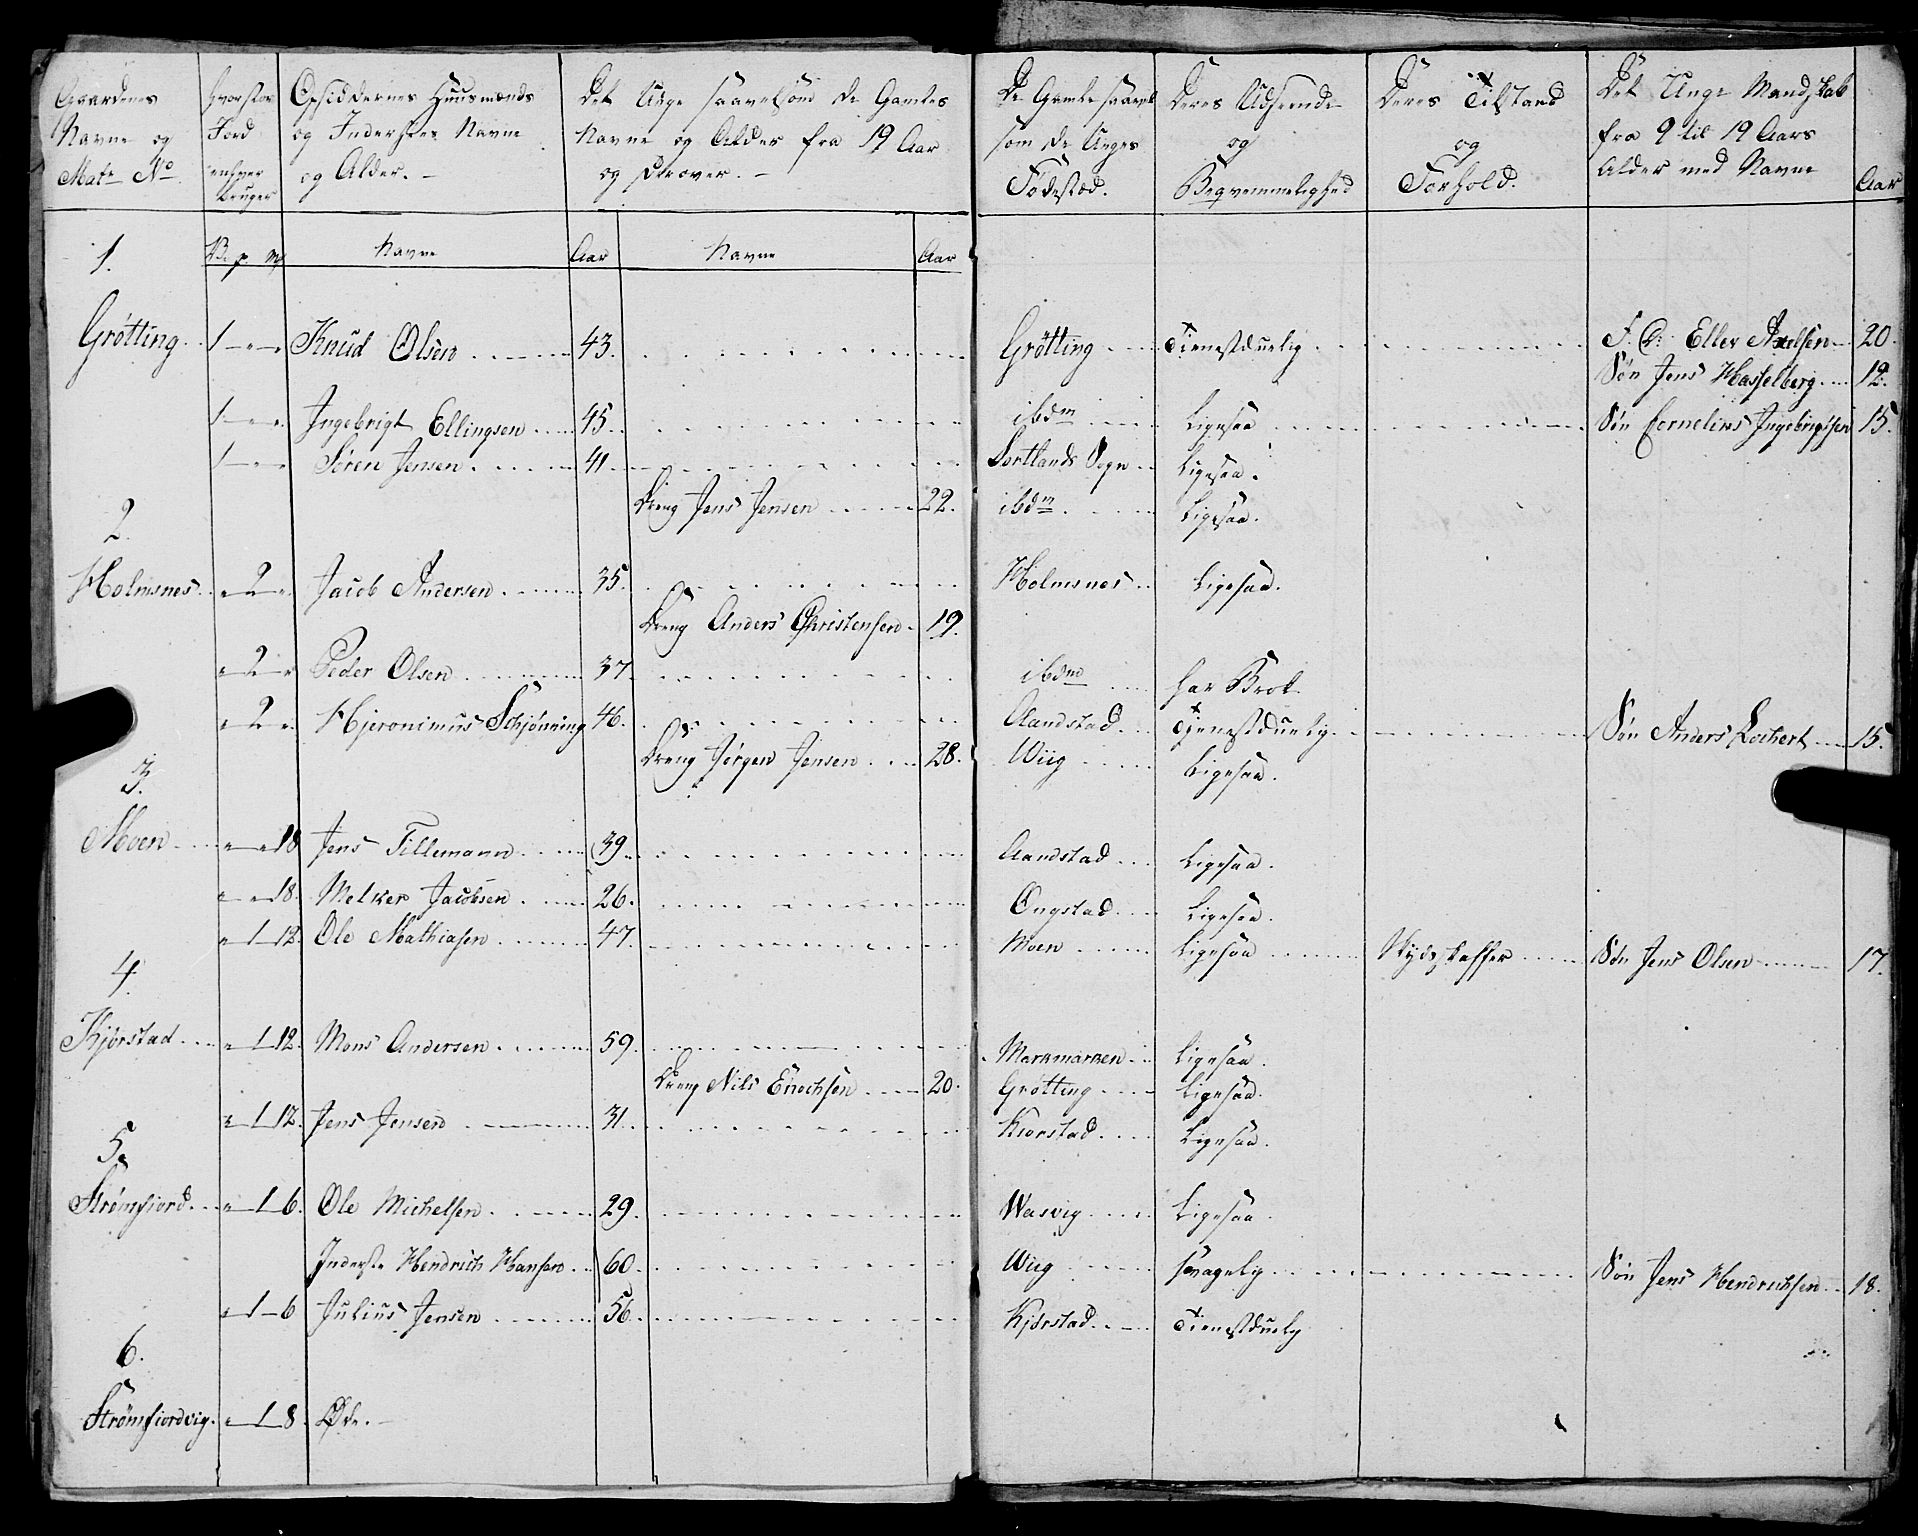 Gaardenes
Navne og
Matr No
hvor stor
Jord
enhver
bruger
Opsiddernes Huusmænds
og Indersters Navne
og Alder. –
Det Unge saavelsom de Gamles
Navne og Alder fra 19 Aar
og derover. –
De Gamle saavel
som de Unges
Fødestæd.
Deres Udseende
og
Beqvemmelighed
Deres Tilstand
og
Forhold.
Det Unge Mandskab
fra 9 til 19 Aars
Alder med Navne
Aar
V. p. m
Navne
Aar
Navne
Aar
1.
Grøtting 1 – „ – „ Knud Olsen 43. Grøtting Tienestduelig Eller Axelsen 20.
Søn Jens Hasselberg 12.
1 – „ – „ Ingebrigt Ellingsen 45. ibdm Ligesaa Søn Cornelius Ingebrigtsen 15.
1 – „ – „ Søren Jensen 41. Sortlands Sogn Ligesaa.
Dreng Jens Jensen 22. ibdm Ligesaa.
2.
Holmsnes „ 2 „ Jacob Andersen 35. Holmsnes Ligesaa.
Dreng Anders Christensen 19.
„ 2 „ Peder Olsen 37 ibdm har Brok
„ 2 „ Hjeronimus Schjønning 46. Aandstad Tjenestduelig Søn Anders Lochert 15.
Dreng Jørgen Jensen 28. Wiig Ligesaa.
3.
Moen „ „ 18 Jens Tillemann 39 Aandstad Ligesaa.
„ „ 18. Melker Jacobsen 26. Ongstad Ligesaa.
„ 1 12. Ole Mathiasen 47. Moen Ligesaa Skydsskaffer Søn Jens Olsen 17.
4.
Kjørstad „ 1 12. Mons Andersen 59. Markmarken Ligesaa.
Dreng Nils Enochsen 20. Grøtting Ligesaa.
„ 1 12. Jens Jensen 31. Kiørstad Ligesaa.
5.
Strømfiord „ 1 6. Ole Michelsen 29. Wasvig Ligesaa.
Inderste Hendrich Hansen 60. Wiig svagelig Søn Jens Hendrichsen 18.
„ 1 – 6 Julius Jensen 56. Kjørstad Tienestduelig
6.
Strømfiordvig. „ 1 8. Øde. –